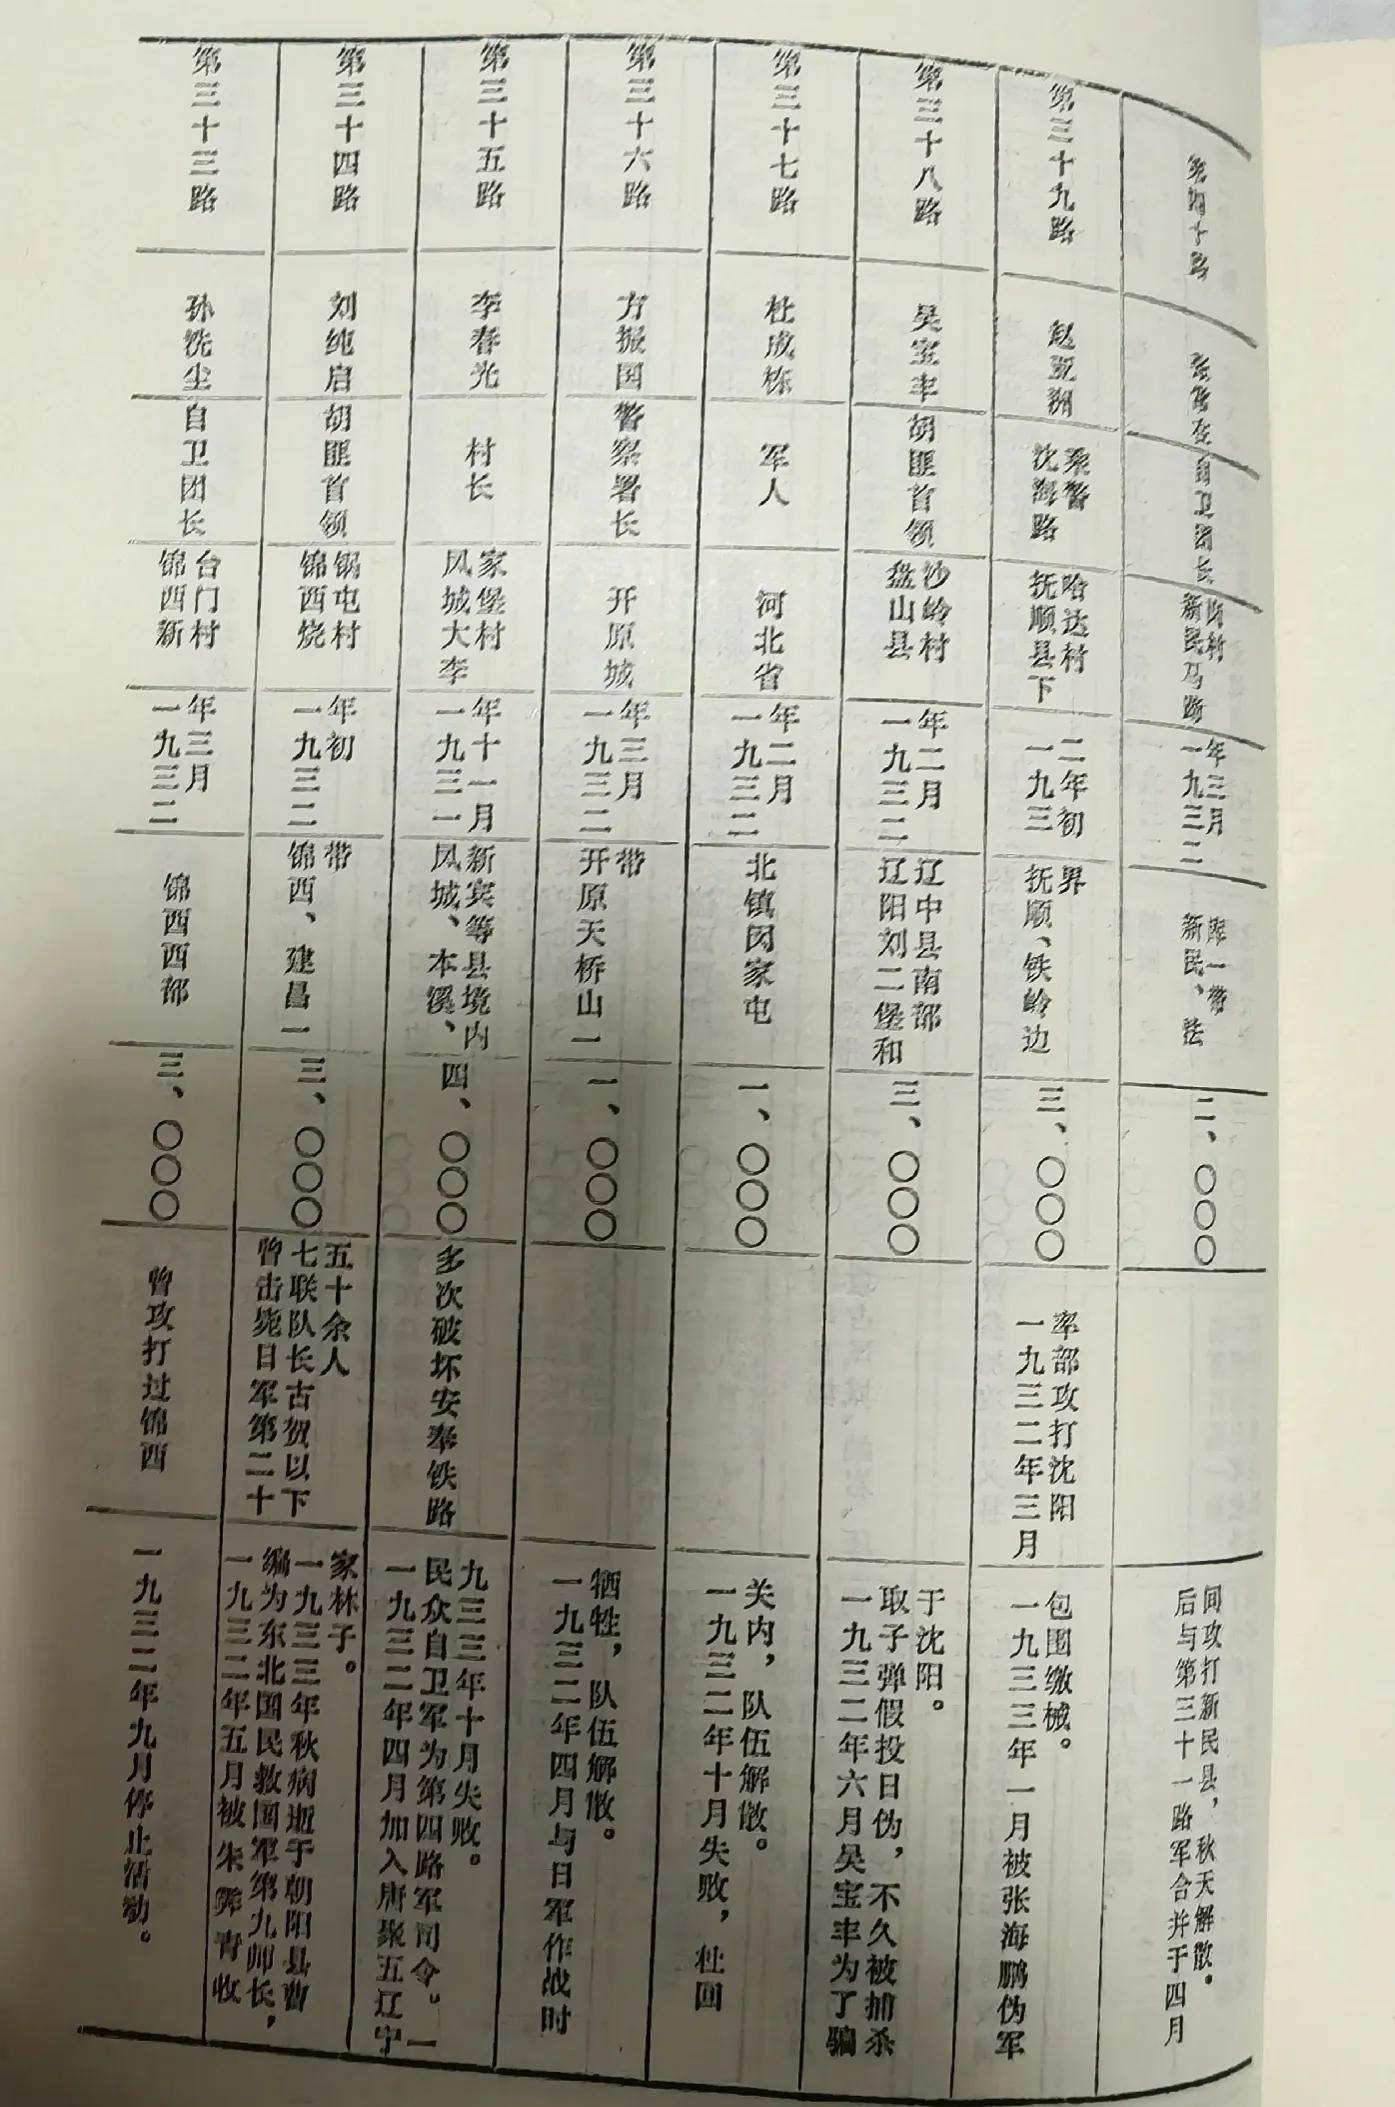 第三十三路
孙洗尘
自卫团长
锦西新
台门村
一九三二
年三月
锦西西部
三、〇〇〇
曾攻打过锦西
一九三二年九月停止活动。
第三十四路
刘纯启
胡匪首领
锦西烧
锅屯村
一九三二
年初
锦西、建昌一
带
三、〇〇〇
曾击毙日军第二十
七联队长古贺以下
五十余人
一九三二年五月被朱霁青收
编为东北国民救国军第九师长，
一九三三年秋病逝于朝阳县曹
家林子。
第三十五路
李春光
村长
凤城大李
家堡村
一九三一
年十一月
凤城、本溪、
新宾等县境内
四、〇〇〇
多次破坏安奉铁路
一九三二年四月加入唐聚五辽宁
民众自卫军为第四路军司令。一
九三三年十月失败。
第三十六路
方振国
警察署长
开原城
一九三二
年三月
开原天桥山一
带
一、〇〇〇
一九三二年四月与日军作战时
牺牲，队伍解散。
第三十七路
杜成栋
军人
河北省
一九三二
年二月
北镇闵家屯
一、〇〇〇
一九三二年十月失败，杜回
关内，队伍解散。
第三十八路
吴宝丰
胡匪首领
盘山县
沙岭村
一九三二
年二月
辽阳刘二堡和
辽中县南部
三、〇〇〇
一九三二年六月吴宝丰为了骗
取子弹假投日伪，不久被捕杀
于沈阳。
第三十九路
赵亚洲
沈海路
乘警
抚顺县下
哈达村
一九三
二年初
抚顺、铁岭边
界
三、〇〇〇
一九三二年三月
率部攻打沈阳
一九三三年一月被张海鹏伪军
包围缴械。
第四十路
自卫团长
新民马
村
一九三二
年三月
新民、法
库一带
二、〇〇〇
后与第三十一路军合并于四月
间攻打新民县，秋天解散。